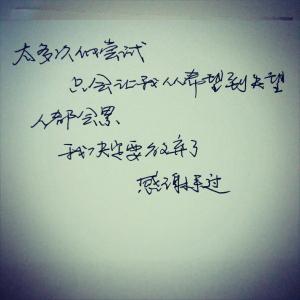 太多次的尝试
只会让我从希望到失望
人都会累
我决定要放弃了
感谢择过